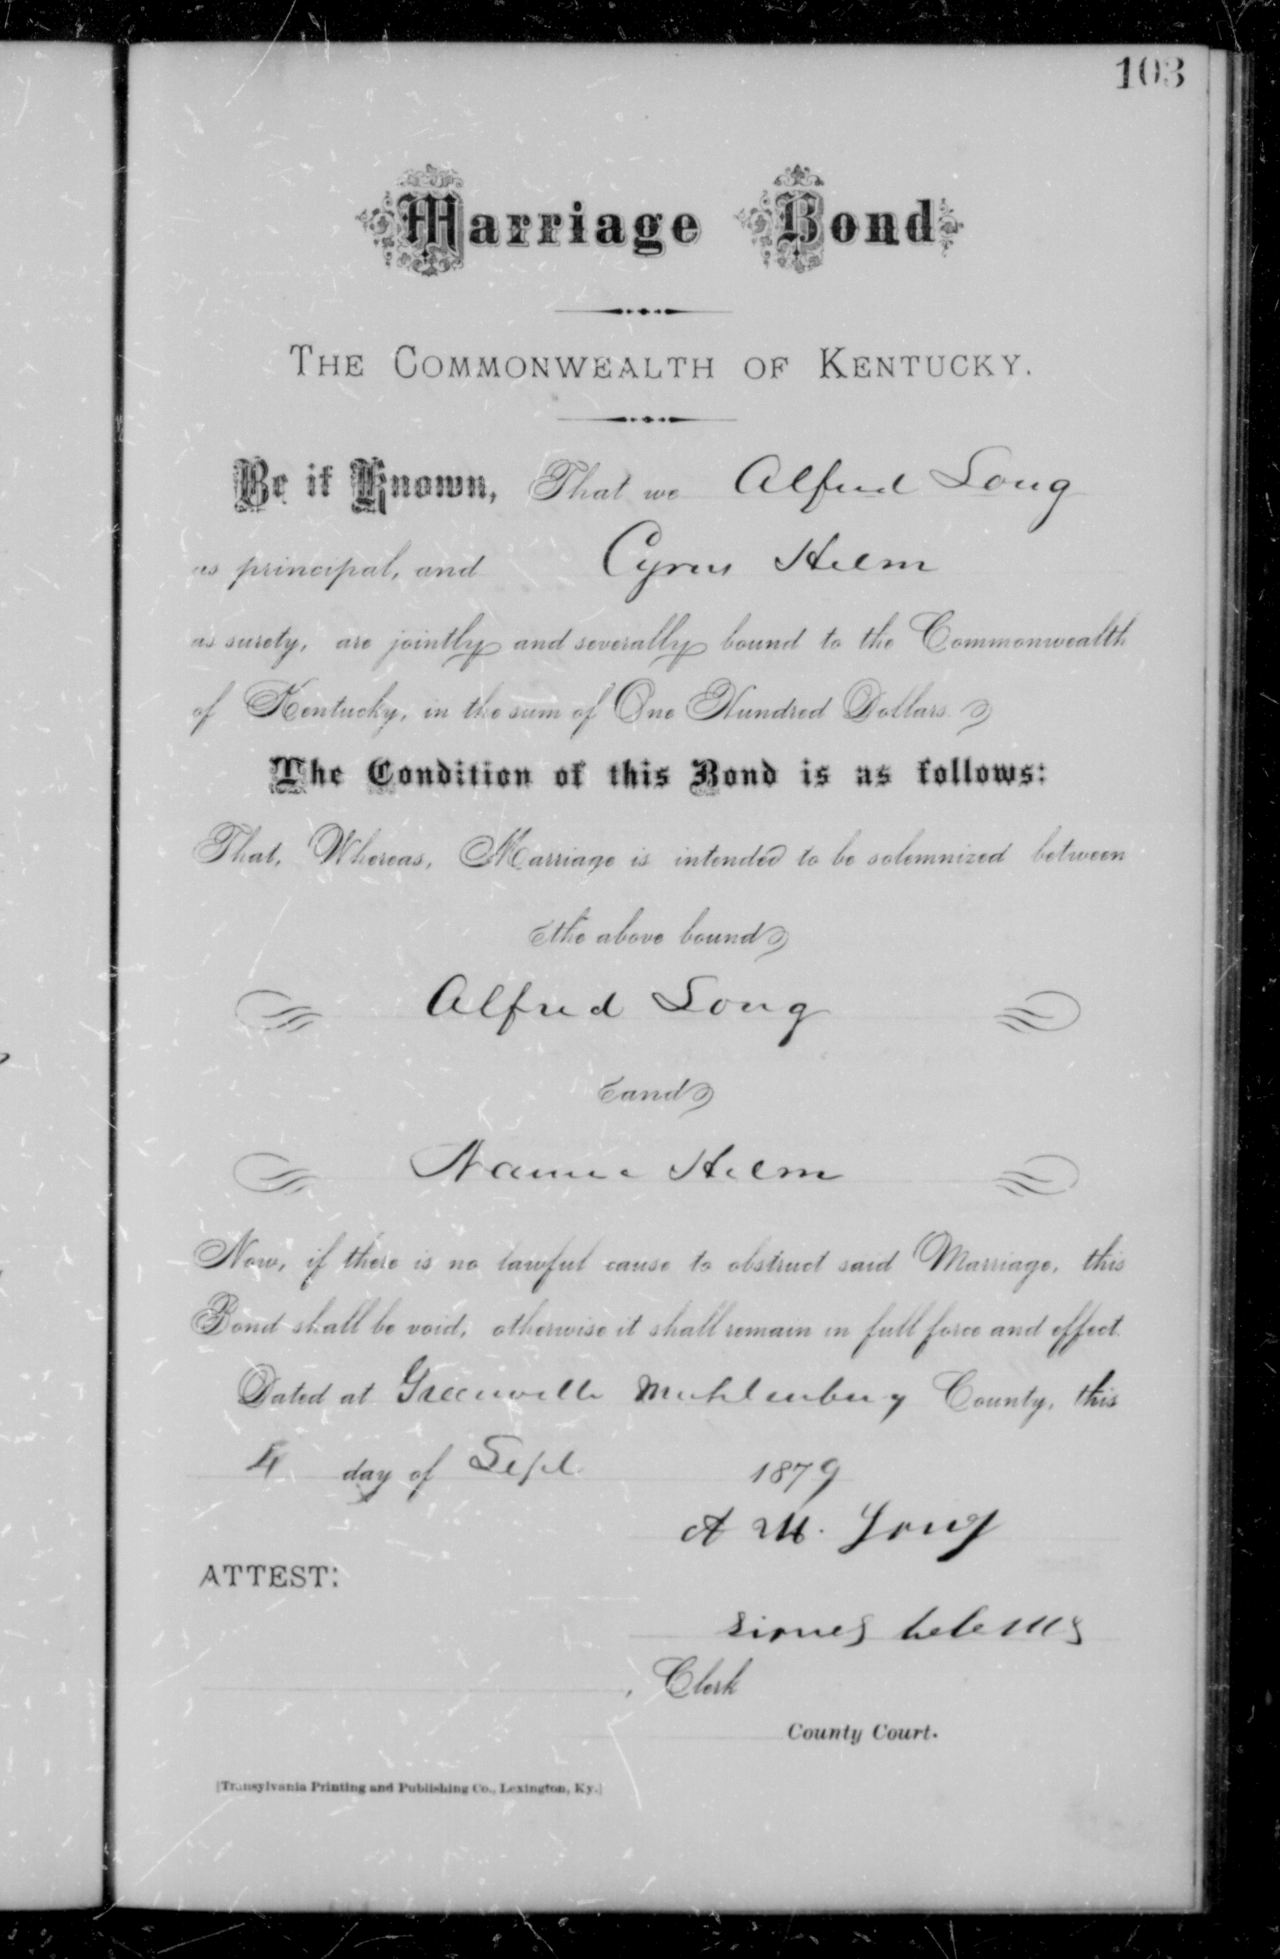 103
Marriage Bond
THE COMMONWEALTH OF KENTUCKY.
Be it Known, That we Alfred Long
as principal, and Cyrus Helm
as surety, are jointly and severally bound to the Commonwealth
of Kentucky, in the sum of One Hundred Dollars.
The Condition of this Bond is as follows:
That, Whereas, Marriage is intended to be solemnized between
the above bound
Alfred Long
and
Nannie Helm
Now, if there is no lawful cause to obstruct said Marriage, this
Bond shall be void, otherwise it shall remain in full force and effect.
Dated at Greenville Muhlenburg County, this
4 day of Sept 1879
A M. Long
ATTEST:
, Clerk
County Court.
[Transylvania Printing and Publishing Co., Lexington, Ky.]